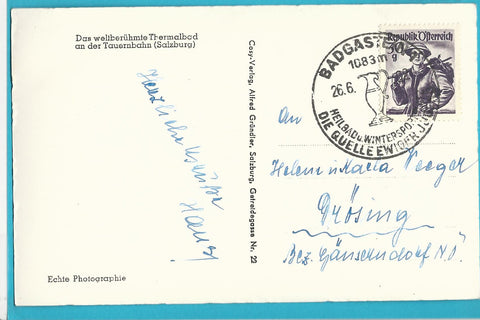 Das weltberühmte Thermalbad
an der Tauernbahn (Salzburg)
Hans
Echte Photographie
Cosy-Verlag, Alfred Gründler, Salzburg, Getreidegasse Nr. 22
BADGASTEIN
1083 m
26.6.
HEILBAD u. WINTERSPORT
DIE QUELLE EWIGER
Republik Österreich
An
Maria
Grösing
Bez. Gänserndorf N.Ö.